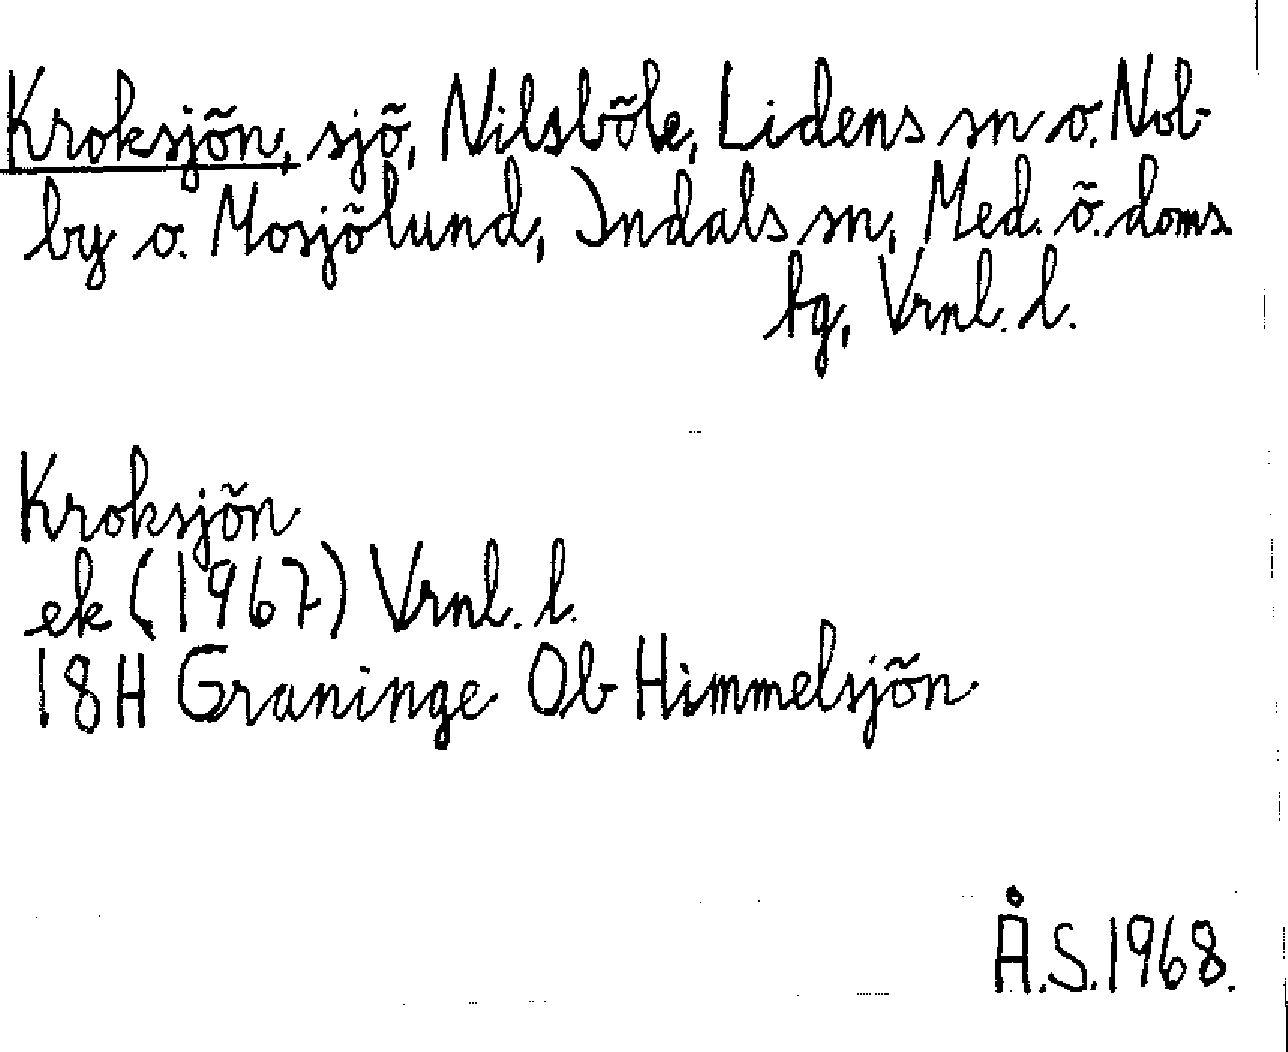 Kroksjön, sjö, Nilsböle, Lidens sn o. Nob-
by o. Mosjölund, Indals sn, Med. ö. doms.
bg, Vrnl. l.
Kroksjön
ek (1967) Vrnl. l.
18H Graninge Ob Himmelsjön
Å.S. 1968.